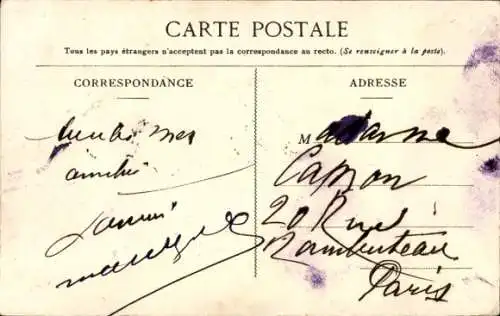 CARTE POSTALE
Tous les pays étrangers n'acceptent pas la correspondance au recto. (Se renseigner à la poste).
CORRESPONDANCE
ADRESSE
Madame
Capron
20 Rue
Rambuteau
Paris
mes
amitiés